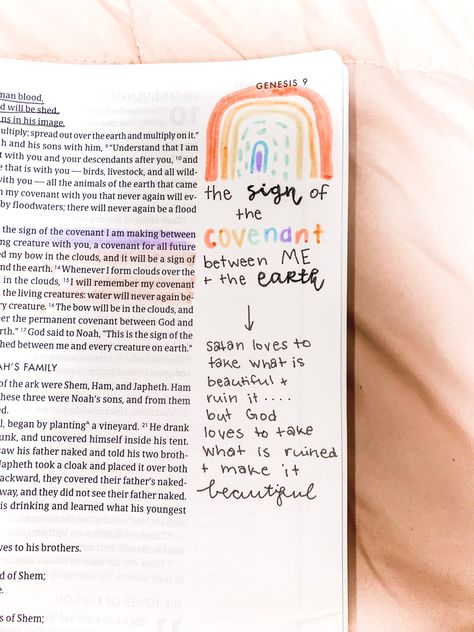 GENESIS 9
man blood,
d will be shed,
ns in his image.
ultiply; spread out over the earth and multiply on it."
h and his sons with him, 9 "Understand that I am
t with you and your descendants after you, 10 and
e that is with you — birds, livestock, and all wild-
with you — all the animals of the earth that came
h my covenant with you that never again will ev-
by floodwaters; there will never again be a flood
the sign of the covenant I am making between
ng creature with you, a covenant for all future
ed my bow in the clouds, and it will be a sign of
nd the earth. 14 Whenever I form clouds over the
in the clouds, 15 I will remember my covenant
the living creatures: water will never again be-
ry creature. 16 The bow will be in the clouds, and
er the permanent covenant between God and
earth." 17 God said to Noah, "This is the sign of the
shed between me and every creature on earth."
AH'S FAMILY
of the ark were Shem, Ham, and Japheth. Ham
hese three were Noah's sons, and from them
ed.
l, began by planting^ a vineyard. 21 He drank
unk, and uncovered himself inside his tent.
saw his father naked and told his two broth-
Japheth took a cloak and placed it over both
ackward, they covered their father's naked-
way, and they did not see their father naked.
is drinking and learned what his youngest
ves to his brothers.
d of Shem;
e.
s of Shem;
the sign of
the
covenant
between ME
+ the earth
satan loves to
take what is
beautiful +
ruin it ....
but God
loves to take
what is ruined
+ make it
beautiful